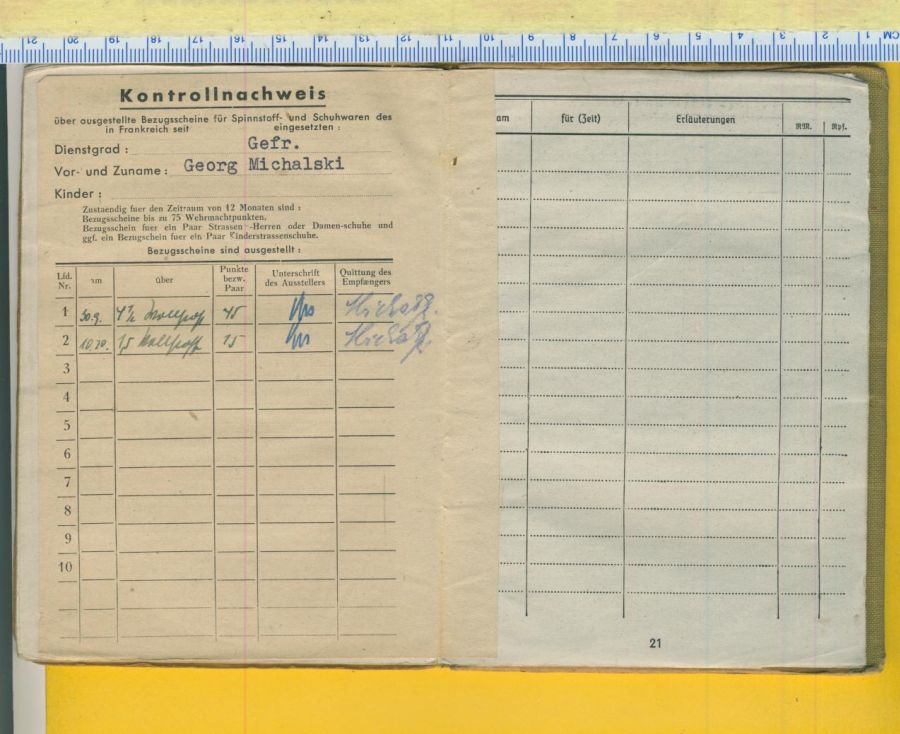 CM 1 2 3 4 5 6 7 8 9 10 11 12 13 14 15 16 17 18 19 20 21
Kontrollnachweis
über ausgestellte Bezugsscheine für Spinnstoff- und Schuhwaren des
in Frankreich seit eingesetzten :
Dienstgrad : Gefr.
Vor- und Zuname : Georg Michalski
Kinder :
Zustaendig fuer den Zeitraum von 12 Monaten sind :
Bezugsscheine bis zu 75 Wehrmachtpunkten.
Bezugsschein fuer ein Paar Strassen -Herren oder Damen-schuhe und
ggf. ein Bezugschein fuer ein Paar Kinderstrassenschuhe.
Bezugsscheine sind ausgestellt :
Lfd. Nr. am über Punkte bezw. Paar Unterschrift des Ausstellers Quittung des Empfängers
1 30.9. 45
2 10.10. 15
3
4
5
6
7
8
9
10
am für (Zeit) Erläuterungen RM. Rpf.
21